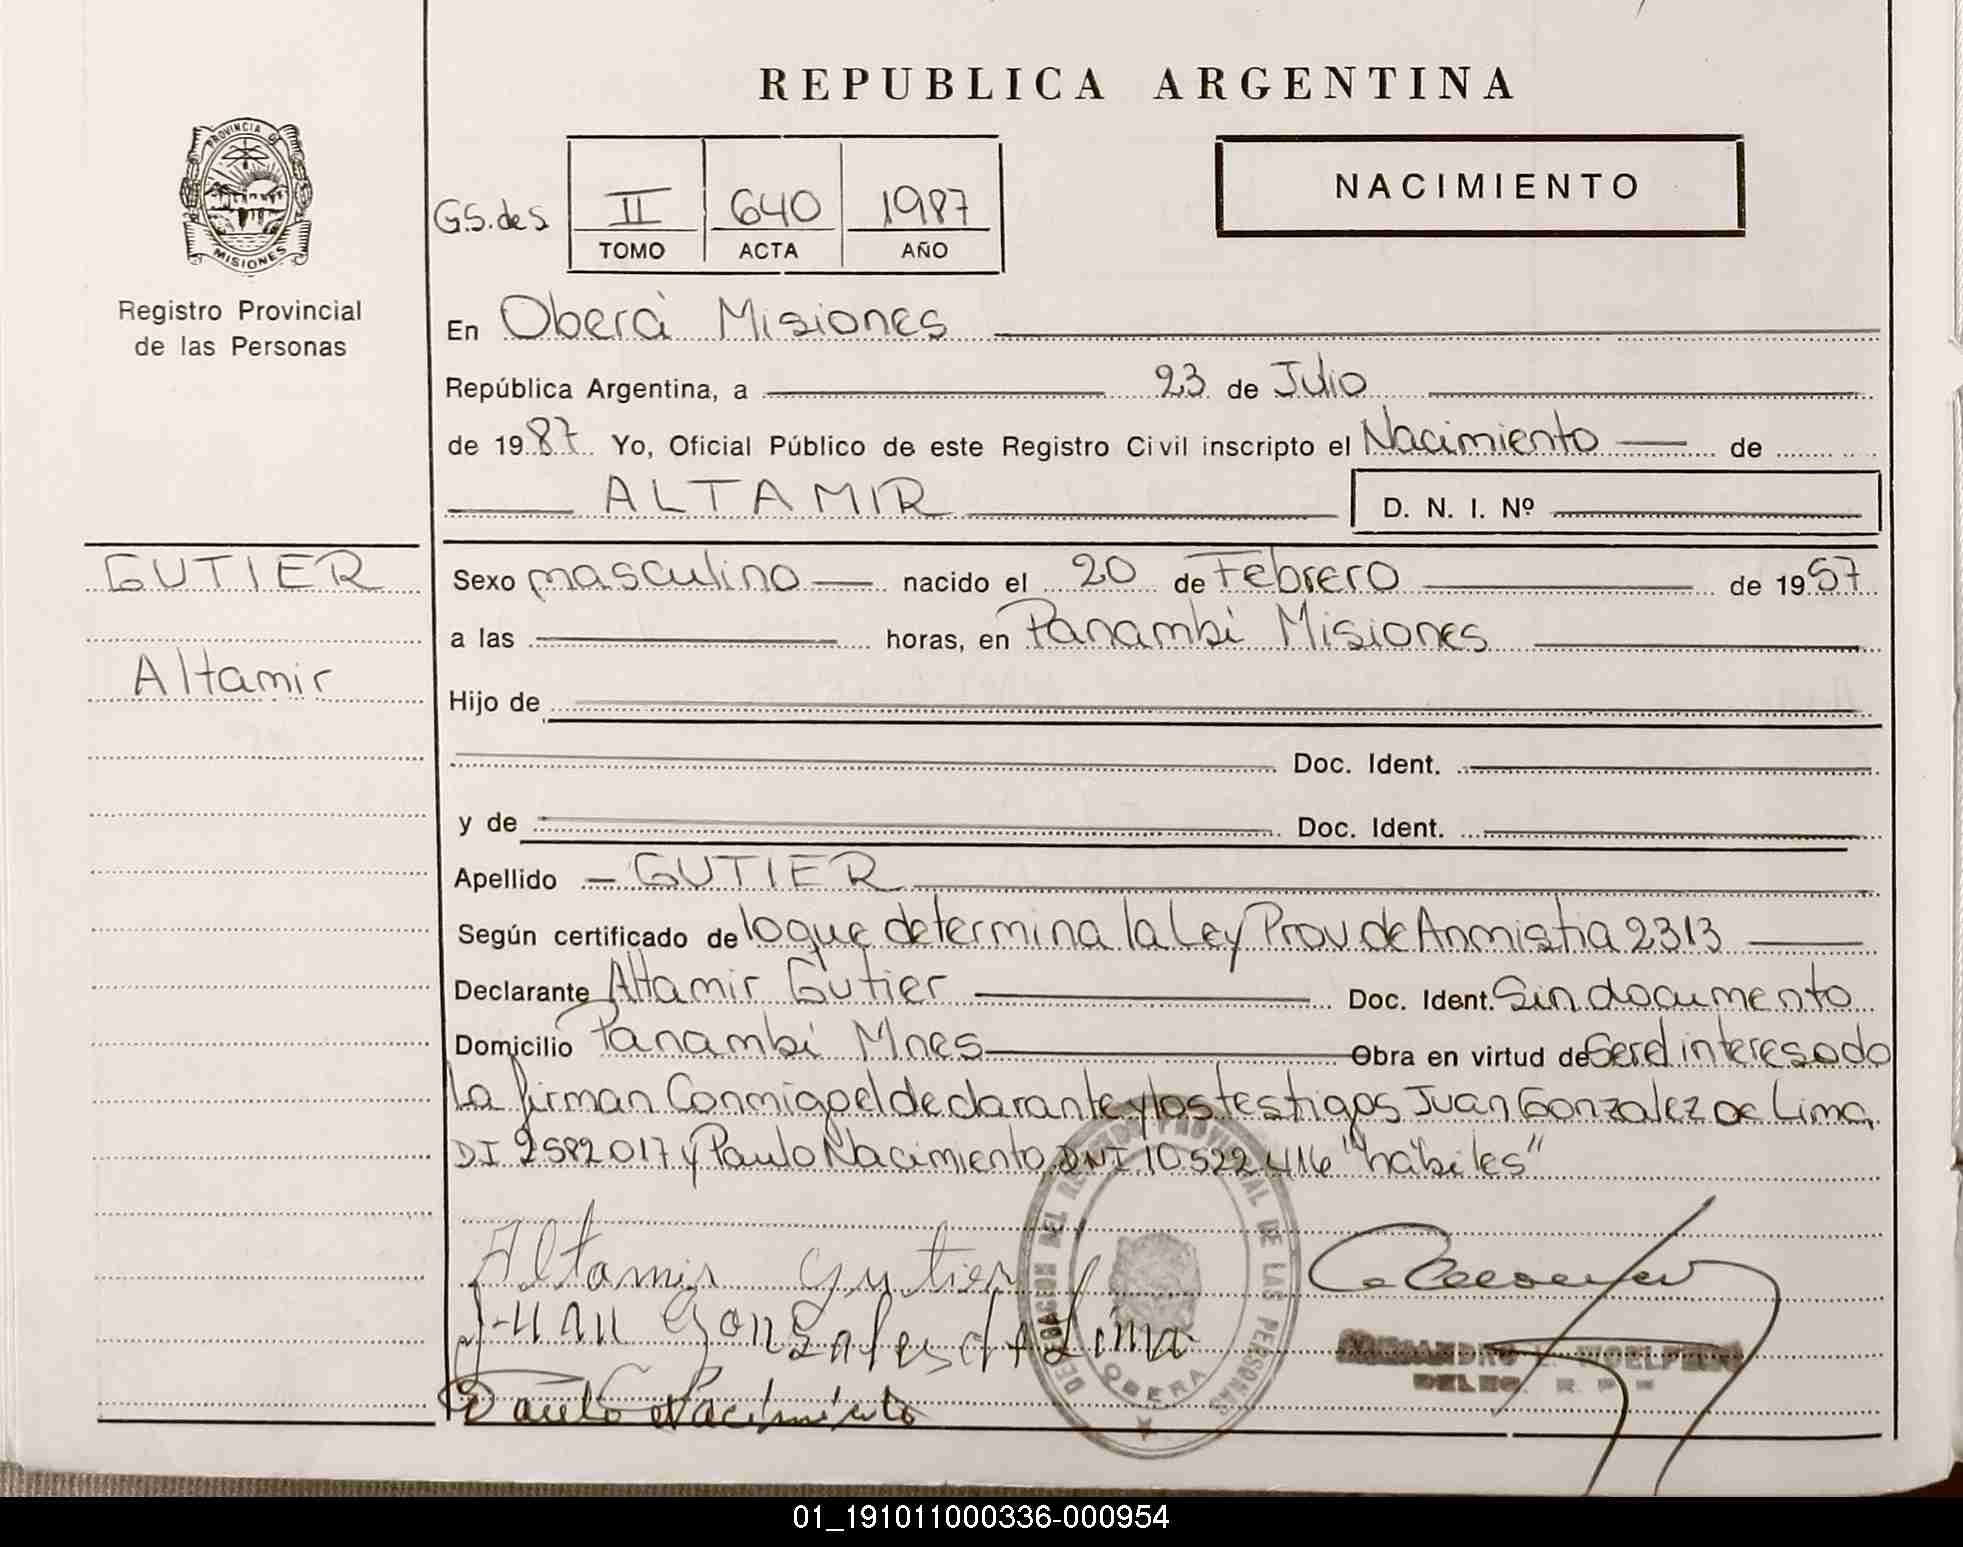 REPUBLICA ARGENTINA
PROVINCIA D
MISIONES
Registro Provincial
de las Personas
G.S. des II 640 1987
TOMO ACTA AÑO
NACIMIENTO
En Oberá Misiones
República Argentina, a 23 de Julio
de 1987 Yo, Oficial Público de este Registro Civil inscripto el Nacimiento de
ALTAMIR D. N. I. Nº
GUTIER
Altamir
Sexo masculino nacido el 20 de Febrero de 1957
a las horas, en Panambí Misiones
Hijo de
Doc. Ident.
y de Doc. Ident.
Apellido GUTIER
Según certificado de lo que determina la Ley Prov de Anmistia 2313
Declarante Altamir Gutier Doc. Ident. Sin documento
Domicilio Panambí Mnes Obra en virtud de Ser el interesado
La firman Conmigo el declarante y los testigos Juan Gonzalez de Lima
DI 2582017 y Paulo Nacimiento DNI 10.522.416 "hábiles"
Altamir gutier
Juan Gonzales de Lima
Paulo Nacimiento
DELEGACION DEL REGISTRO PROVINCIAL DE LAS PERSONAS
OBERA
01_191011000336-000954